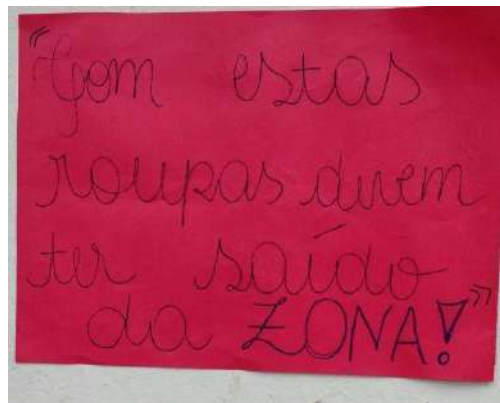 "Com estas
roupas devem
ter saído
da ZONA!"